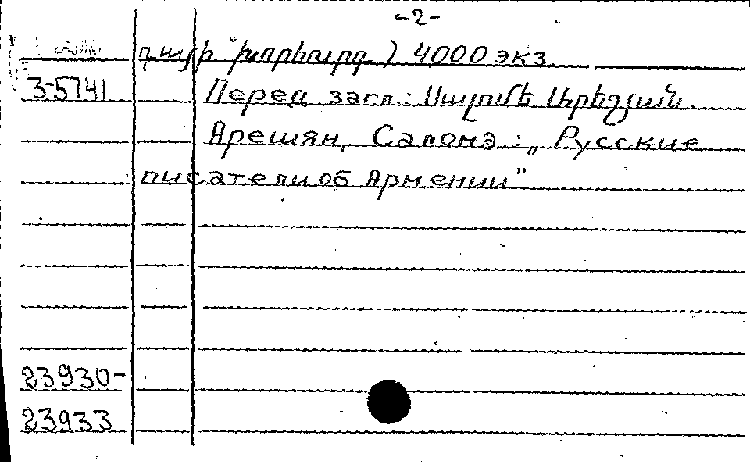 -2-
դայի խորհուրդ.) 4000 экз.
3-5741 Перед загл.: Սալոմե Արեշյան.
Арешян, Саломэ: „Русские
писатели об Армении"
23930-
23933